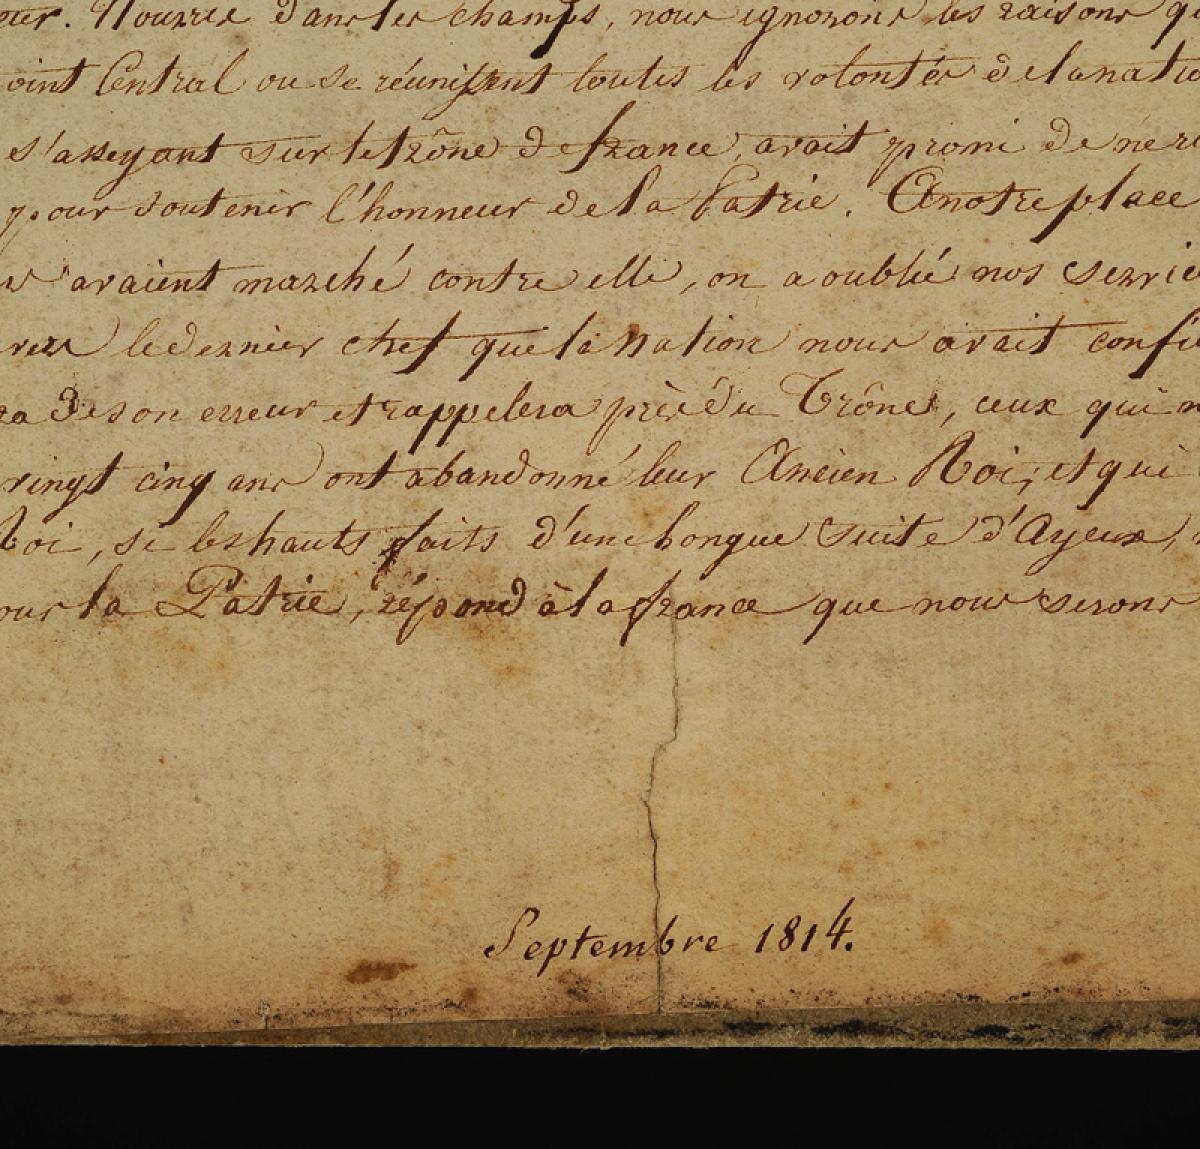 Nourris dans les champs, nous ignorons les raisons
oint Central ou se réunissent toutes les volontés de la natio
s'asseyant sur le trône de france, avait promi de ne
pour soutenir l'honneur de la Patrie. A notre place
avaient marché contre elle, on a oublié nos servic
le dernier chef que la Nation nous avait confi
ra de son erreur et rappelera près du Trône, ceux qui
vingt cinq ans ont abandonné leur Ancien Roi; et qui
Roi, si les hauts faits d'une longue suite d'Ayeux,
our la Patrie, répond à la france que nous serons
Septembre 1814.